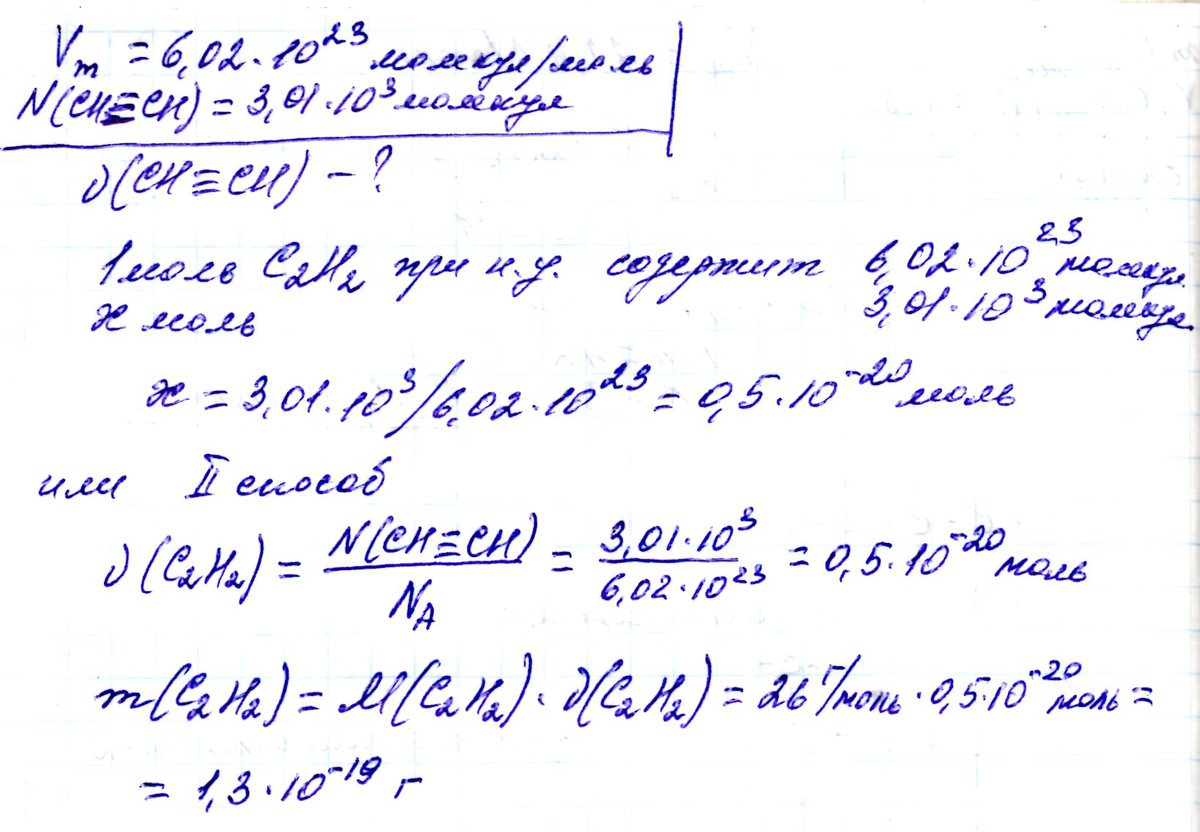 Vm = 6,02·10²³ молекул/моль
N(CH≡CH) = 3,01·10³ молекул
ν(CH≡CH) – ?
1 моль C₂H₂ при н.у. содержит 6,02·10²³ молекул
x моль 3,01·10³ молекул
x = 3,01·10³/6,02·10²³ = 0,5·10⁻²⁰ моль
или II способ
ν(C₂H₂) = N(CH≡CH)/N_A = 3,01·10³/6,02·10²³ = 0,5·10⁻²⁰ моль
m(C₂H₂) = M(C₂H₂)·ν(C₂H₂) = 26 г/моль · 0,5·10⁻²⁰ моль =
= 1,3·10⁻¹⁹ г